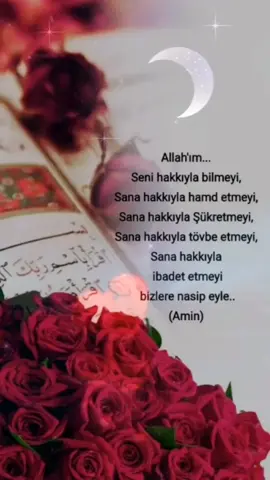 Allah'ım...
Seni hakkıyla bilmeyi,
Sana hakkıyla hamd etmeyi,
Sana hakkıyla Şükretmeyi,
Sana hakkıyla tövbe etmeyi,
Sana hakkıyla
ibadet etmeyi
bizlere nasip eyle..
(Amin)